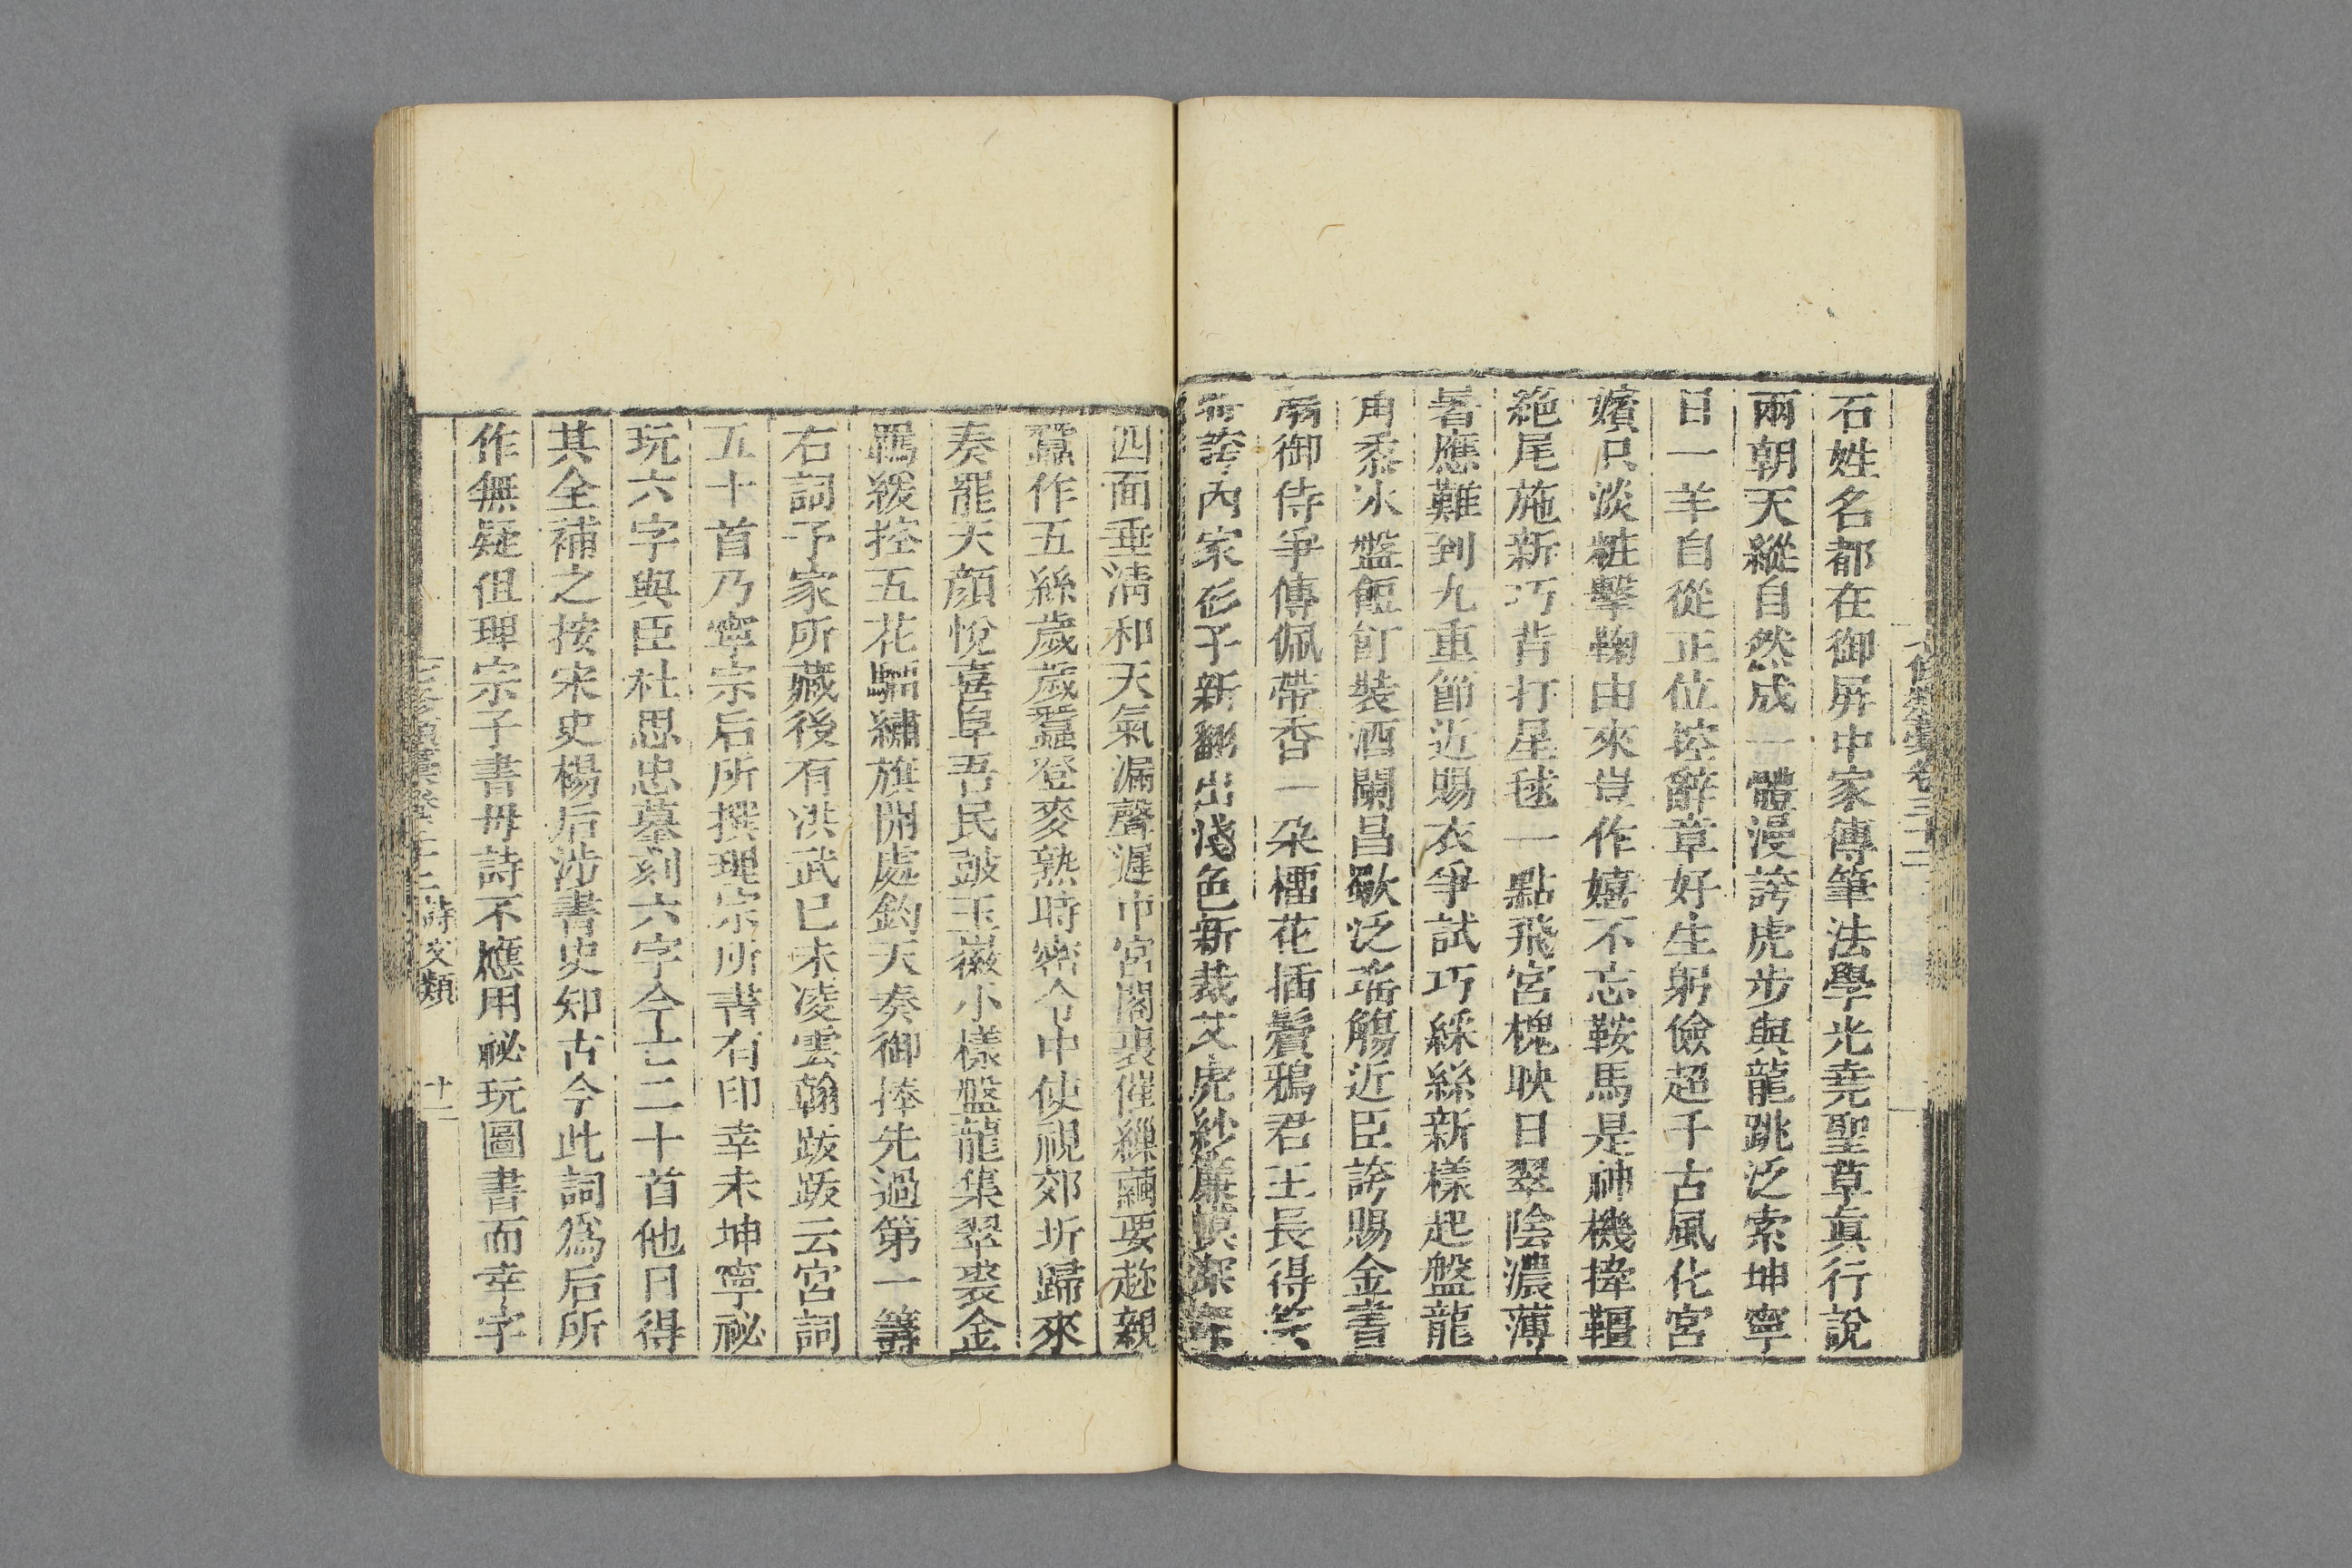 石姓名都在御屛中家傳筆法學光堯聖草眞行說
兩朝天縱自然成一體漫誇虎步與龍跳泛索坤寧
日一羊自從正位控辭章好生躬儉超千古風化宮
嬪只淡粧擊鞠由來豈作嬉不忘鞍馬是神機揵韁
絶尾施新巧背打星毬一點飛宮槐映日翠陰濃薄
暑應難到九重節近賜衣爭試巧綵絲新樣起盤龍
角黍冰盤飣裝酒闌昌歜泛瑤觴近臣誇賜金書
扇御侍爭傳佩帶香一朶榴花插鬢鴉君王長得笑
誇內家衫子新翻出淺色新裁艾虎紗簾幙深
四面垂淸和天氣漏聲遲中宮閣裏催繅繭要趂親
蠶作五絲歲歲蠶登麥熟時密令中使視郊圻歸來
奏罷天顏悅喜阜吾民鼓玉徽小樣盤龍集翠裘金
羈緩控五花驑繡旗開處鈞天奏御捧先過第一籌
右詞予家所藏後有洪武已未凌雲翰跋跋云宮詞
五十首乃寧宗后所撰理宗所書有印幸未坤寧祕
玩六字與臣杜思忠摹刻六字今亡二十首他日得
其全補之按宋史楊后涉書史知古今此詞爲后所
作無疑但理宗子書毋詩不應用祕玩圖書而幸字
詩文類